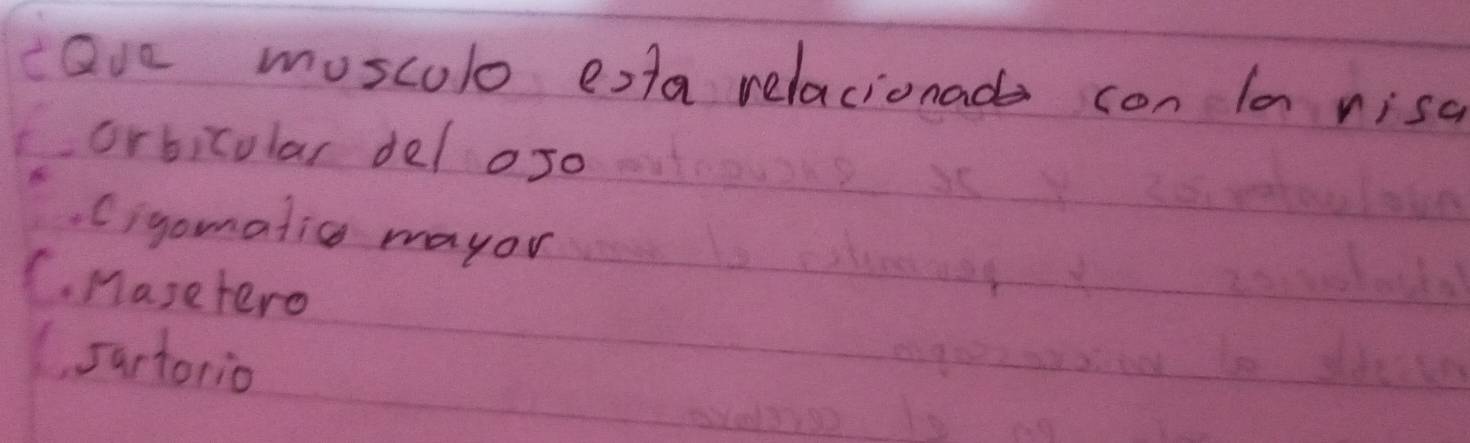 ¿Que musculo esta relacionado con la risa
. orbicular del ojo
. Cigomatico mayor
. Masetero
. sartorio